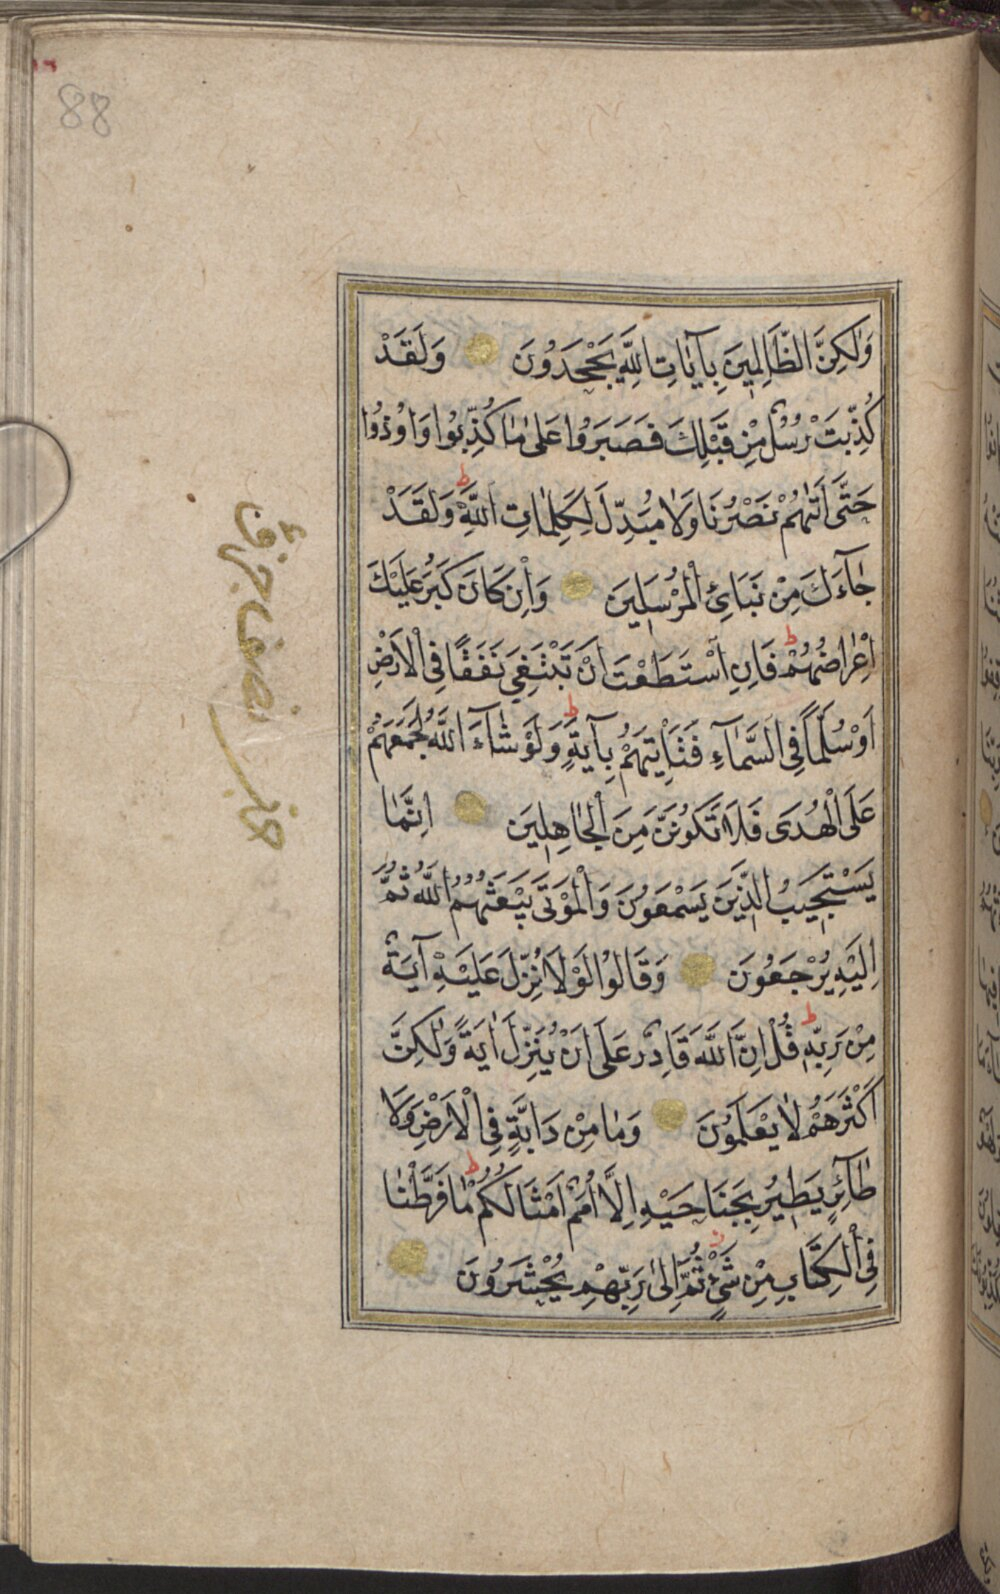 88
وَلٰكِنَّ الظَّالِمِينَ بِآيَاتِ اللَّهِ يَجْحَدُونَ وَلَقَدْ
كُذِّبَتْ رُسُلٌ مِنْ قَبْلِكَ فَصَبَرُوا عَلٰى مَا كُذِّبُوا وَاُوذُوا
حَتَّى اَتٰيهُمْ نَصْرُنَا وَلَا مُبَدِّلَ لِكَلِمَاتِ اللَّهِ ط وَلَقَدْ
جَآءَكَ مِنْ نَبَائِ الْمُرْسَلِينَ وَاِنْ كَانَ كَبُرَ عَلَيْكَ
اِعْرَاضُهُمْ ط فَاِنِ اسْتَطَعْتَ اَنْ تَبْتَغِيَ نَفَقًا فِي الْاَرْضِ
اَوْ سُلَّمًا فِي السَّمَآءِ فَتَاْتِيَهُمْ بِآيَةٍ ط وَلَوْ شَآءَ اللَّهُ لَجَمَعَهُمْ
عَلَى الْهُدَى فَلَا تَكُونَنَّ مِنَ الْجَاهِلِينَ اِنَّمَا
يَسْتَجِيبُ الَّذِينَ يَسْمَعُونَ وَالْمَوْتَى يَبْعَثُهُمُ اللَّهُ ثُمَّ
اِلَيْهِ يُرْجَعُونَ وَقَالُوا لَوْلَا نُزِّلَ عَلَيْهِ آيَةٌ
مِنْ رَبِّهِ ط قُلْ اِنَّ اللَّهَ قَادِرٌ عَلَى اَنْ يُنَزِّلَ اٰيَةً وَلٰكِنَّ
اَكْثَرَهُمْ لَا يَعْلَمُونَ وَمَا مِنْ دَابَّةٍ فِي الْاَرْضِ وَلَا
طَآئِرٍ يَطِيرُ بِجَنَاحَيْهِ اِلَّا اُمَمٌ اَمْثَالُكُمْ ط مَا فَرَّطْنَا
فِي الْكِتَابِ مِنْ شَيْءٍ ثُمَّ اِلٰى رَبِّهِمْ يُحْشَرُونَ